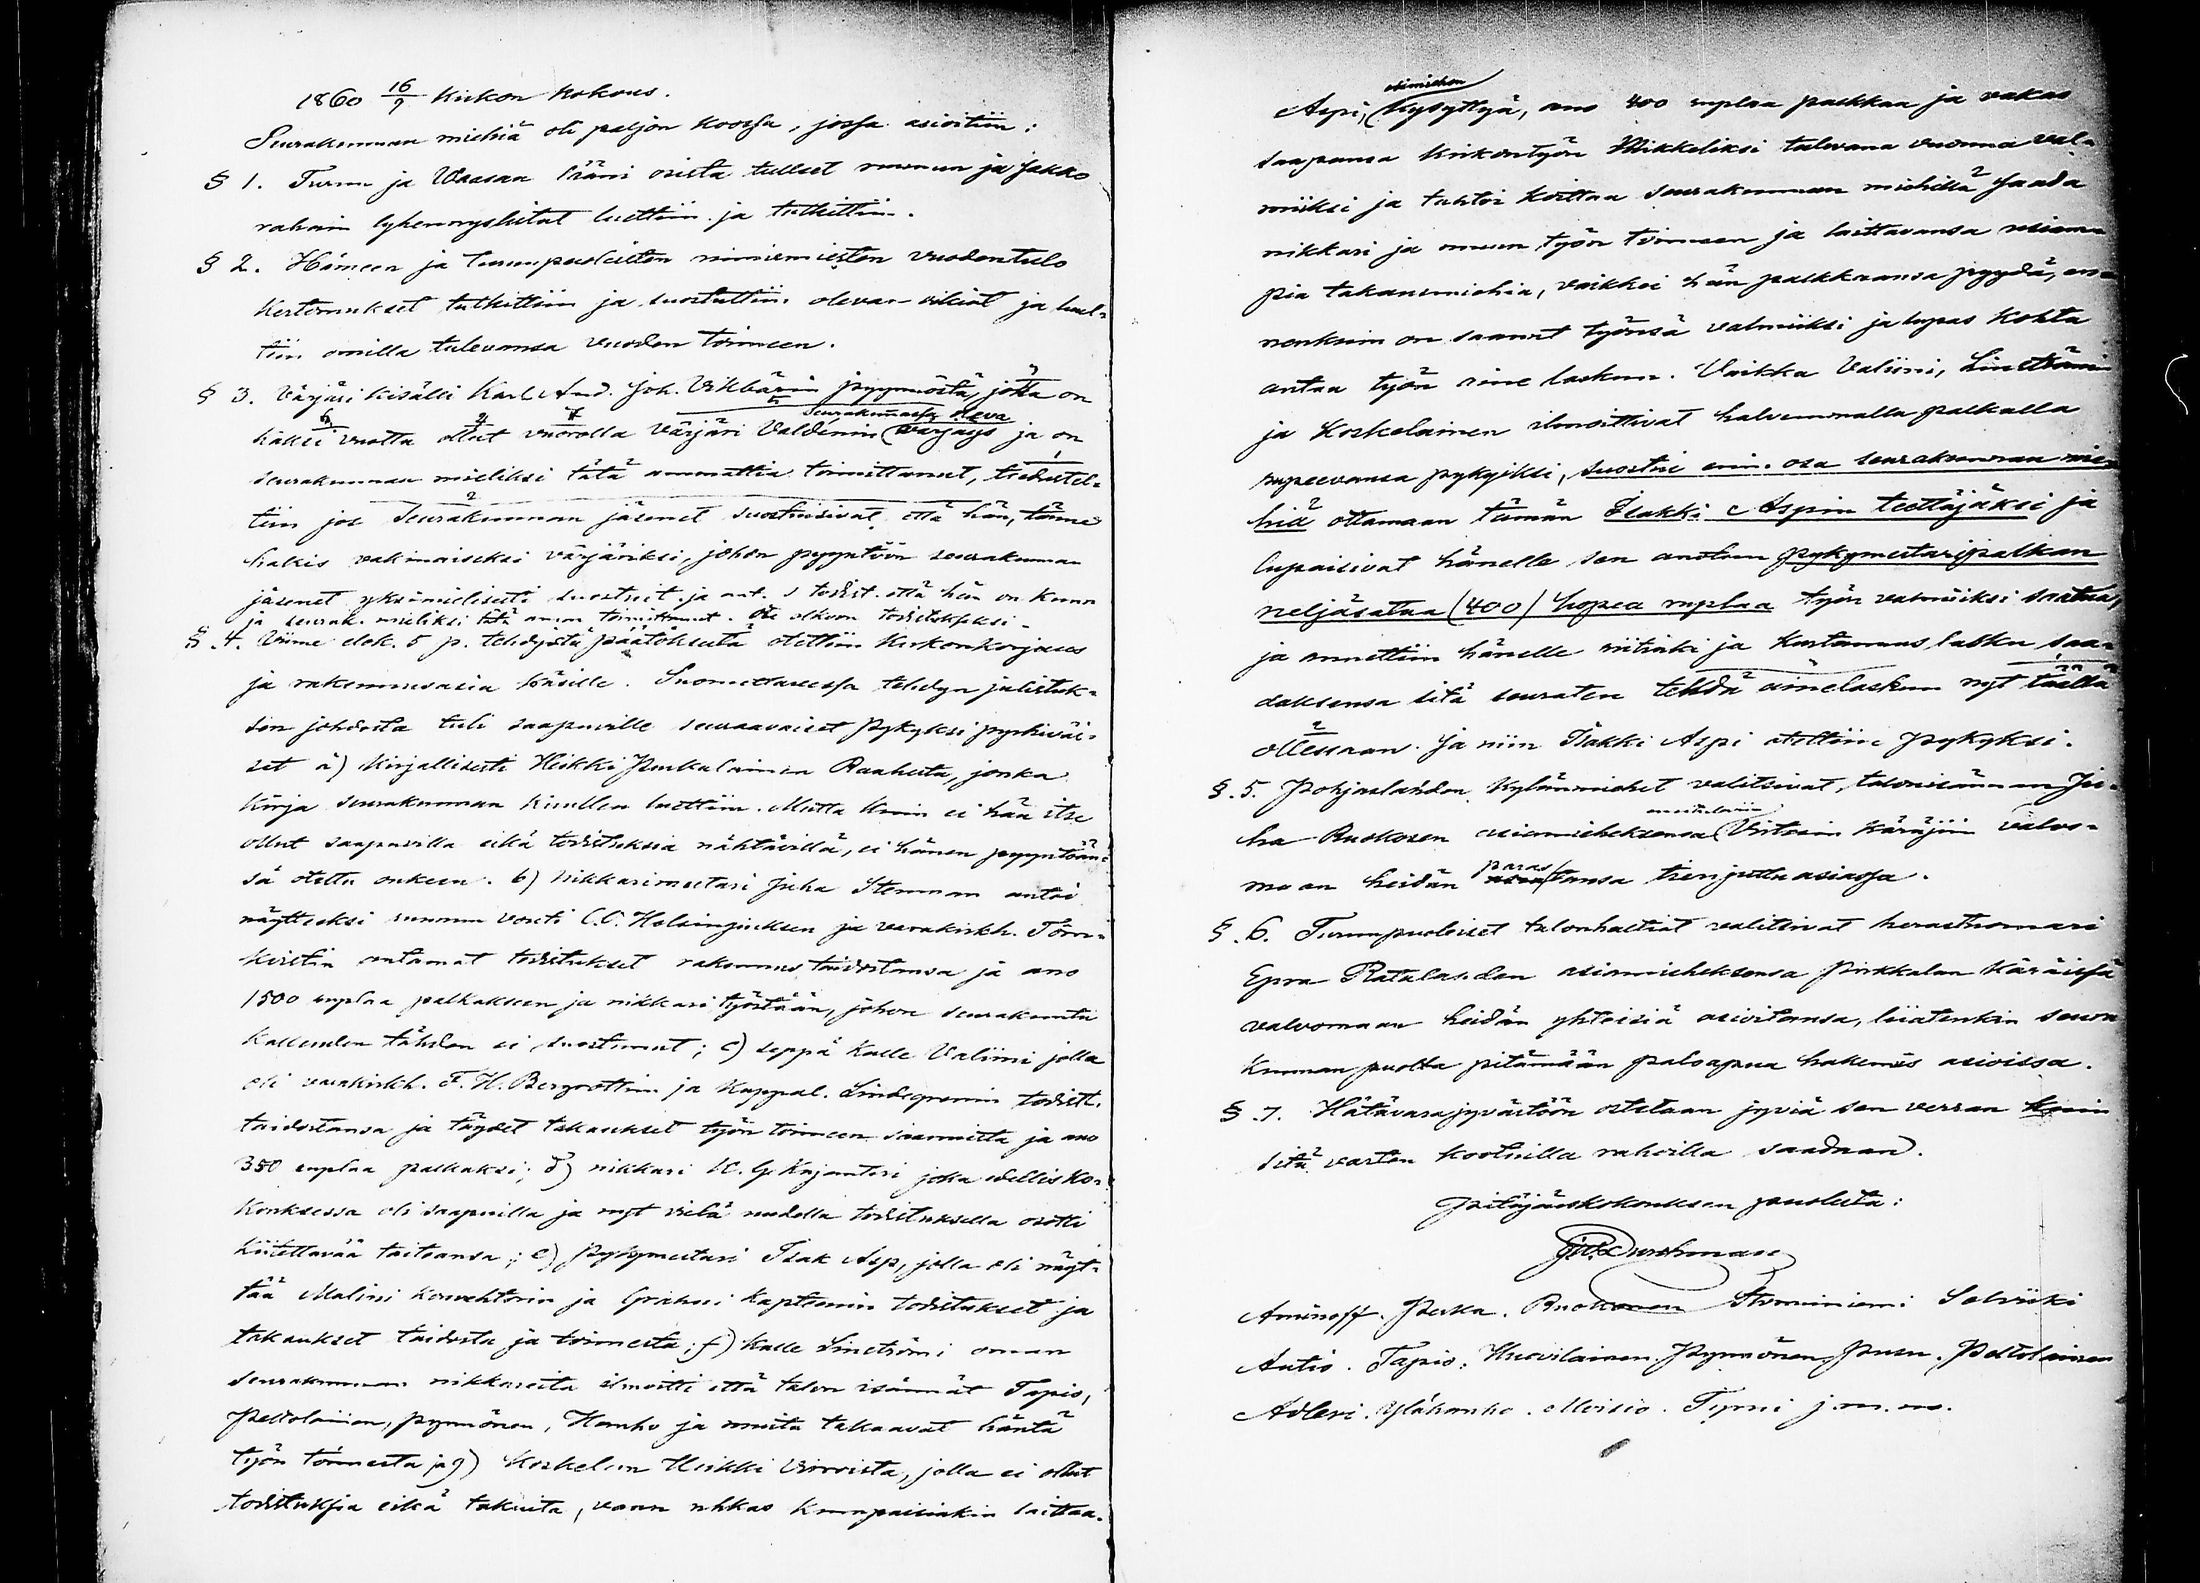 1860 16/9 Kirkon Kokous.
Seurakunnan miehiä oli paljon koossa, jossa asioitiin:
§ 1. Turun ja Waasan lääni osista tulleet ruunun ja Jakko
rahain lyhennyslistat luettiin ja tutkittiin.
§ 2. Hämeen ja Turunpuoleisten nimismiesten vuodentulo
kertomukset tutkittiin ja suostuttiin olevan oikiat ja luul-
tiin omilla tulevansa vuoden toimeen.
§ 3. Värjäri kisälli Karl And. Joh. Vikbärin pyynnöstä, joka on
kaksi vuotta ollut vuorolla värjäri Valdénin (seurakunnassa oleva värjäys ja on
seurakunnan mieliksi tätä ammattia toimittanut, tiedustel-
tiin jos Seurakunnan jäsenet suostuisivat että hän, tänne
hakis vakinaiseksi värjäriksi, johon pyyntöön seurakunnan
jäsenet yksimielisesti suostuit ja ant. s todist. että hän on kunn
ja seurak. mieliksi tätä amm. toimittanut. olkoon todistukseksi-
§ .4. Viime elok. 5 p. tehdystä päätöksestä otettiin kirkonkorjaus
ja rakennusasia käsille. Suomettaressa tehdyn julistuk-
sen johdosta tuli saapuville seuraavaiset pykyksi pyrkiväi-
set a) kirjallisesti Heikki Kuukalainen Raahesta, jonka
kirja seurakunnan kuullen luettiin. Mutta kuin ei hän itse
ollut saapuvilla eikä todistuksia nähtävillä, ei hänen pyyntöän-
sä otettu onkeen. b) Nikkarimestari Juha Stenman antoi
näytteeksi ruunun vouti C.C. Helsingiuksen ja varakirkh. Törn-
kvistin antamat todistukset rakennustaidostansa ja ano
1500 ruplaa palkakseen ja nikkari työstään, johon seurakunta
kalleuden tähden ei suostunut; c) seppä Kalle Valiini jolla
oli varakirkh. F. H. Bergrothin ja kappal. Lindegrenin todist.
taidostansa ja täydet takaukset työn toimeen saannista ja ano
350 ruplaa palkaksi; d) nikkari K. G. Kajanteri joka edellis ko-
kouksessa oli saapuilla ja nyt vielä uudella todistuksella osotti
kiitettävää taitoansa; e) Pykymestari Isak Asp, jolla oli näyt-
tää Malini konrehtorin ja Grahni kapteenin todistukset ja
takaukset taidosta ja toimesta; f) Kalle Linström i oman
seurakunnan nikkareita ilmoitti että talon isännät Tapio,
Peltolainen, Pynnönen, Hanho ja muita takaavat häntä
työn toimesta ja g) Koskelan Heikki Virroista, jolla ei ollut
todistuksia eikä takuita, vaan uhkas kumpaisiakin laittaa.
Aspi, (kysyttyä, ano 400 ruplaa palkkaa ja vakas
saapansa kirkontyön Mikkeliksi tulevana vuonna val-
miiksi ja tahtoi koittaa seurakunnan miehillä saada
nikkari ja muun työn toimeen ja laittavansa useam-
pia takausmiehiä, vaikkei hän palkkaansa pyydä, en-
nenkuin on saanut työnsä valmiiksi ja lupas kohta
antaa työn aine laskun. Vaikka Valiini, Linström
ja Koskelainen ilmoittivat halvemmalla palkalla
rupeevansa pykyiksi, suostui enin osa seurakunnan mie-
hiä ottamaan tämän Isakki Aspin teettäjäksi ja
lupaisivat hänelle sen anotun pykymestaripalkan
neljäsataa (400) hopea ruplaa työn valmiiksi saatua,
ja annettiin hänelle riitinki ja kustannus lasku saa-
daksensa sitä seuraten tehdä ainelaskun nyt täällä
ollessaan. Ja niin Isakki Aspi otettiin pykyksi.
§. 5. Pohjaslahden kylänmiehet valitsivat, talonisännän Ju-
ha Ruokosen asiamieheksensa Virtain käräjiin valvo-
maan heidän parastansa tienjuttu asiassa.
§. 6. Turunpuoleiset talonhaltiat valitsivat herastuomari
Epra Ratalahden asiamieheksensa Pirkkalan käräissä
valvomaan heidän yhteisiä asioitansa, liiatenkin seura
kunnan puolta pitämään paloapua hakemis asioissa.
§ .7. Hätävarajyvästöön ostetaan jyviä sen verran kuin
sitä varten kootuilla rahoilla saadaan.
Pitäjänkokouksen puolesta:
Durchman
Aminoff. Perka. Ruokonen Storminiemi Solviiki
Autio. Tapio. Huovilainen. Pynnönen, Puusn. Peltolainen
Adleri. Ylähanho. Moisio. Tyrni j.m.m.